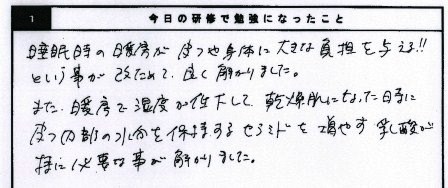 1 今日の研修で勉強になったこと
睡眠時の暖房が皮フや身体に大きな負担を与える!!
という事が改ためて、良く解かりました。
また、暖房で湿度が低下して、乾燥肌になった時に
皮フ内部の水分を保持するセラミドを増やす乳酸が
特に必要な事が解かりました。